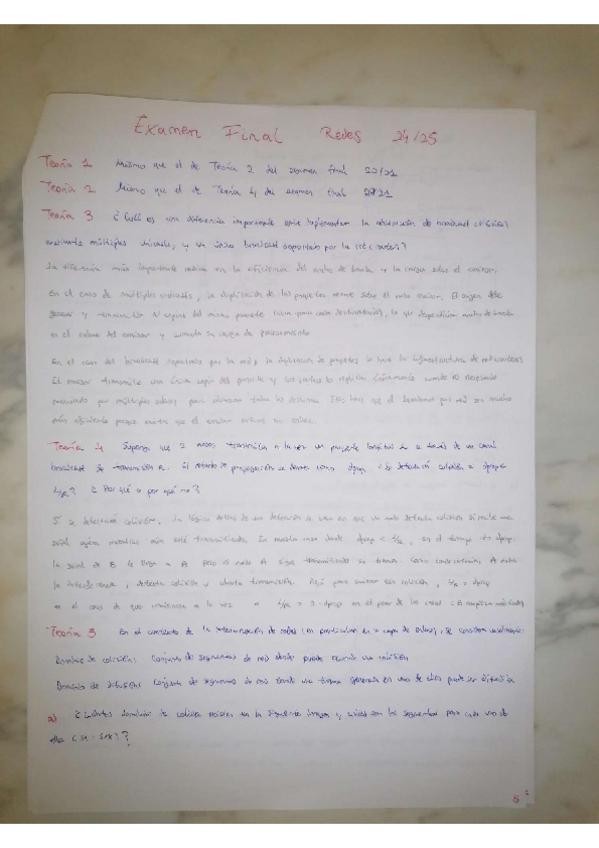 Examen Final Redes 24/25
Teoría 1 Mismo que el de Teoría 2 del examen final 20/21
Teoría 2 Mismo que el de Teoría 4 del examen final
Teoría 3 ¿Cuál es una diferencia importante entre implementar la abstracción de broadcast
mediante múltiples unicasts, y un único broadcast soportado por la red (routers)?
La diferencia más importante radica en la eficiencia del ancho de banda y la carga sobre el emisor.
En el caso de múltiples unicasts, la duplicación de los paquetes recae sobre el nodo emisor. El origen debe
generar y transmitir N copias del mismo paquete (una para cada destinatario), lo que desperdicia ancho de banda
en el enlace del emisor y aumenta su carga de procesamiento
En el caso del broadcast soportado por la red, la duplicación de paquetes la hace la infraestructura de
El emisor transmite una única copia del paquete y los routers lo replican únicamente cuando es necesario
por múltiples para alcanzar todos los destinos. Esto hace que el broadcast por red sea mucho
más eficiente porque evita que el emisor
Teoría 4 Suponga que 2 nodos transmiten a la vez un paquete longitud L a través de un canal
broadcast de transmisión R. El retardo de propagación se denota como dprop ¿Se detectará colisión si dprop<
L/R? ¿Por qué o por qué no?
Sí se detectará colisión. La lógica detrás de una detección se basa en que un nodo detecta colisión si recibe una
señal ajena mientras aún está transmitiendo. En nuestro caso donde dprop < L/R, en el tiempo t= dprop
la señal de B le llega a A pero el nodo A sigue transmitiendo su trama. Como consecuencia, A nota
la interferencia, detecta colisión y aborta transmisión.
en el caso de que comiencen a la vez
Teoría 5 En el contexto de la interconexión de redes (en particular en la capa de enlace), se consideran
Dominio de colisión: Conjunto de segmentos de red donde puede ocurrir una colisión
Dominio de difusión: Conjunto de segmentos de red donde una trama generada en uno de ellos puede ser difundida
a) ¿Cuántos dominios de colisión existen en la siguiente imagen y cuáles son los segmentos para cada uno de
ellos